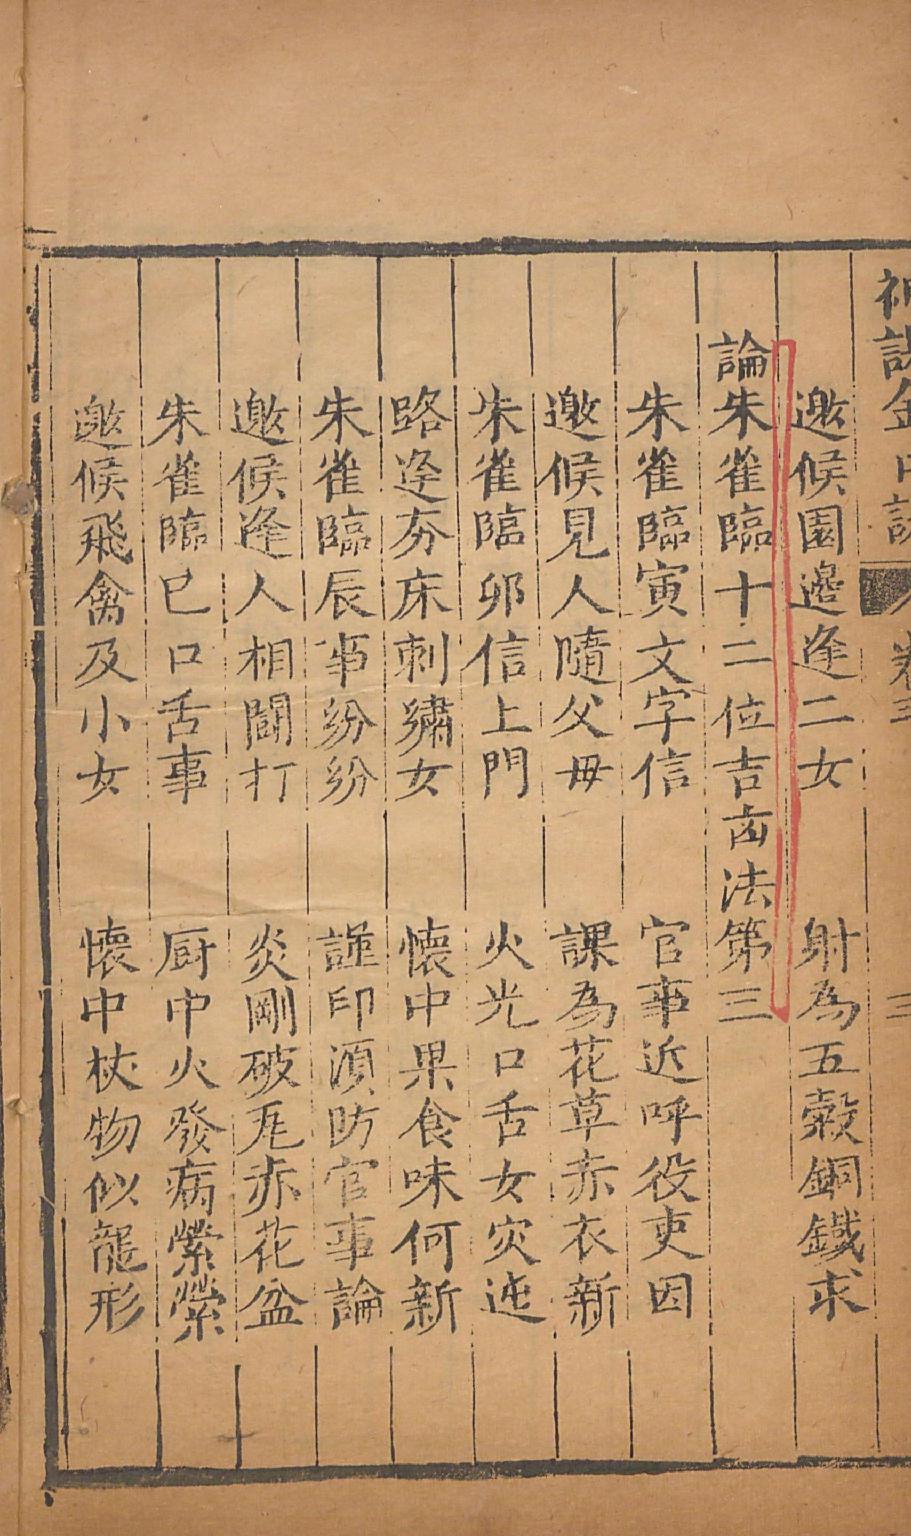 邀候園邊逢二女　射為五穀銅鐵求
論朱雀臨十二位吉凶法第三
朱雀臨寅文字信　官事近呼役吏因
邀候見人隨父母　課為花草赤衣新
朱雀臨卯信上門　火光口舌女灾迍
路逢夯床刺繡女　懷中果食味何新
朱雀臨辰事紛紛　謹印須防官事論
邀候逢人相鬪打　炎剛破瓦赤花盆
朱雀臨巳口舌事　厨中火發病縈縈
邀候飛禽及小女　懷中杖物似龍形